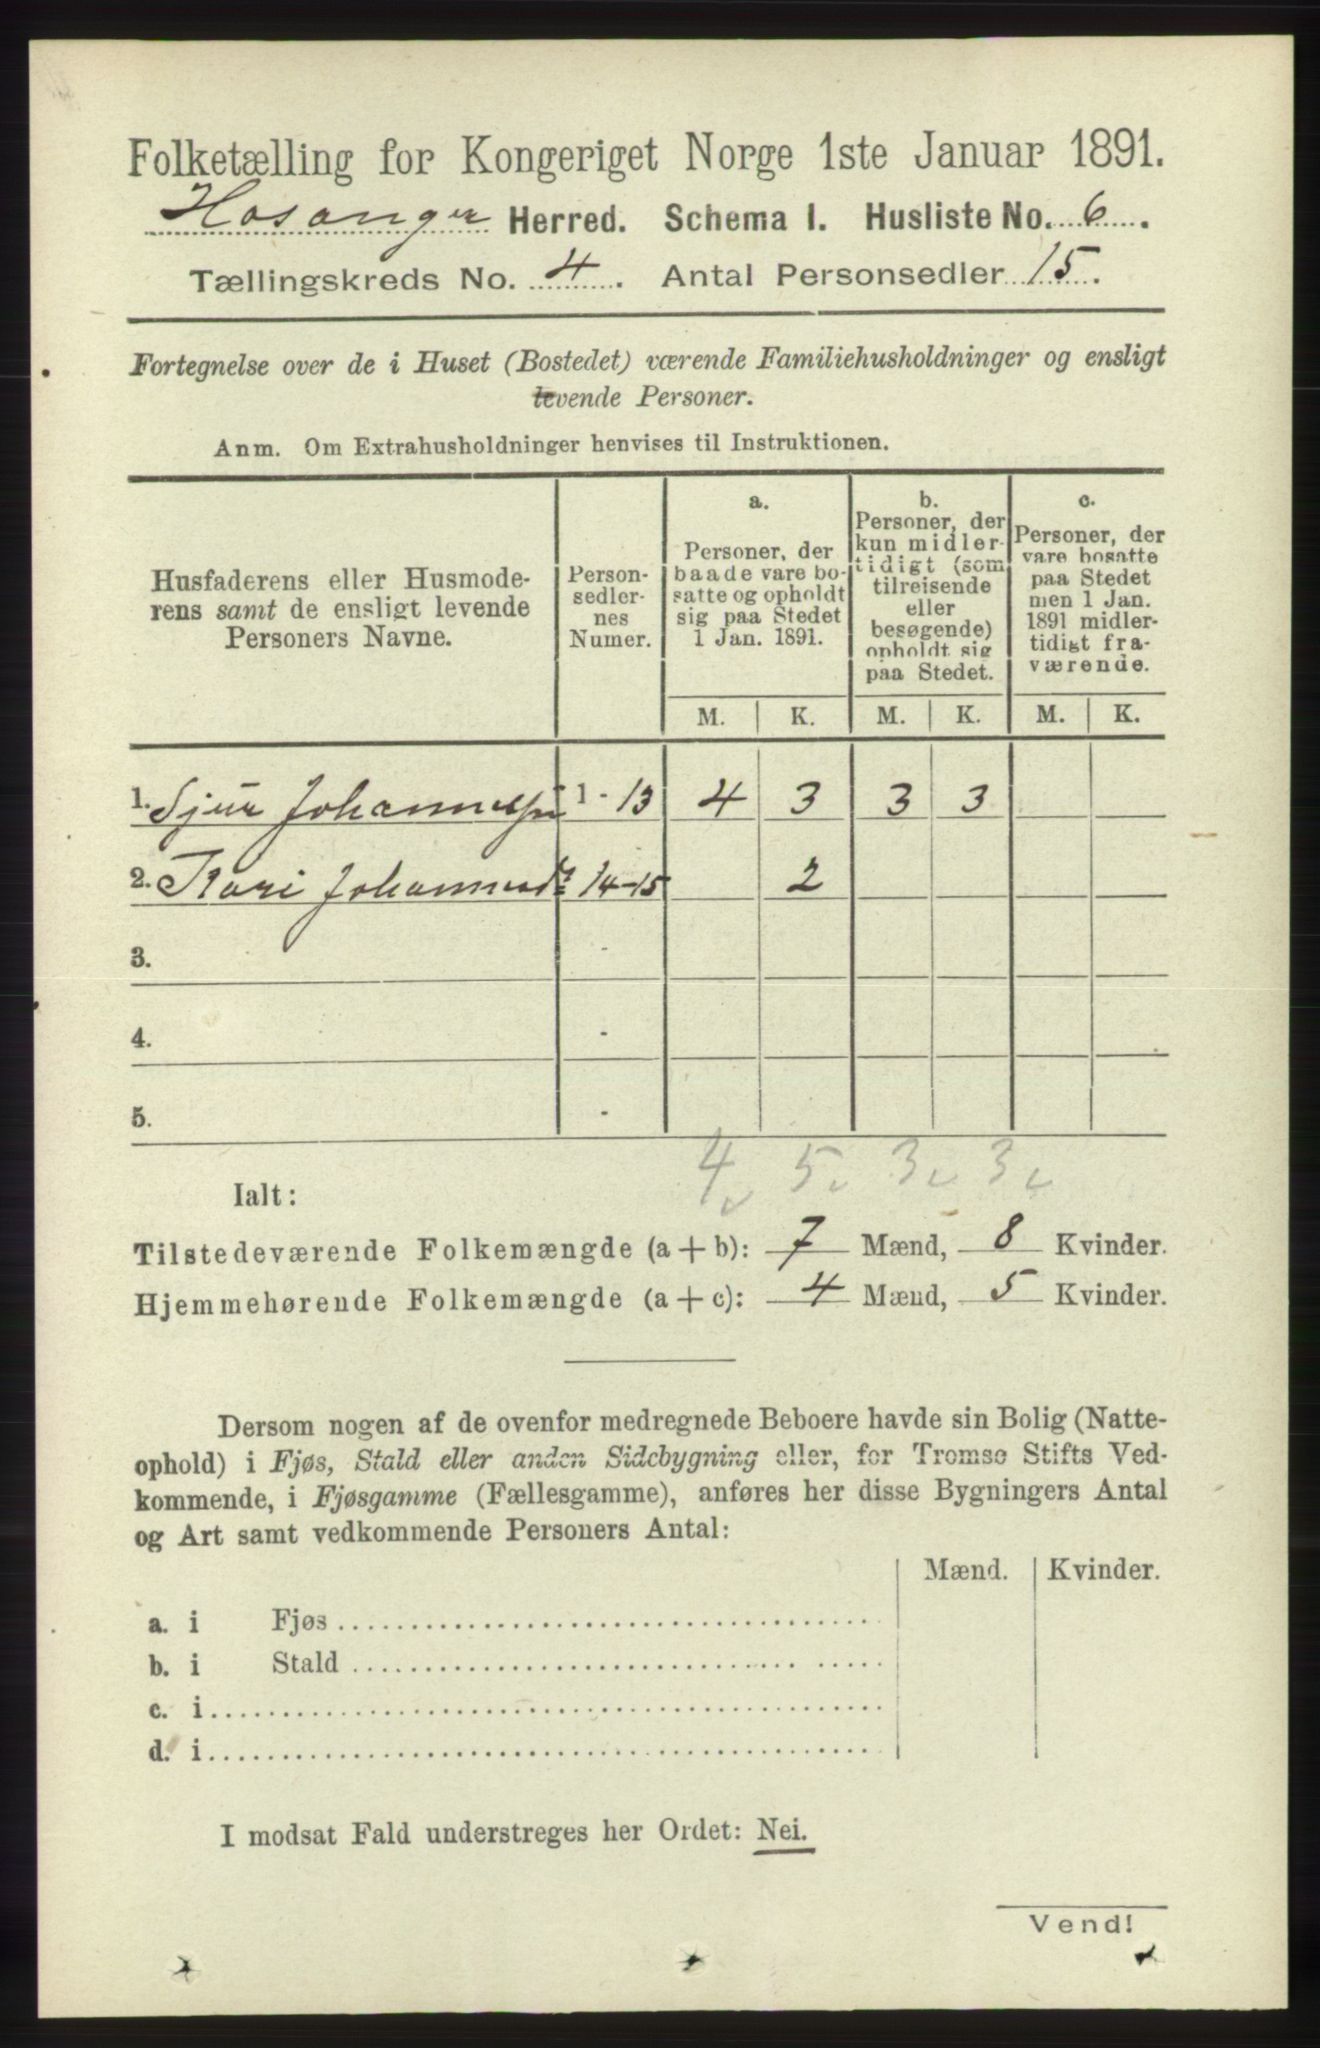 Folketælling for Kongeriget Norge 1ste Januar 1891.
Hosanger Herred. Schema I. Husliste No. 6.
Tællingskreds No. 4. Antal Personsedler 15.
Fortegnelse over de i Huset (Bostedet) værende Familiehusholdninger og ensligt
levende Personer.
Anm. Om Extrahusholdninger henvises til Instruktionen.
Husfaderens eller Husmode-
rens samt de ensligt levende
Personers Navne.
Person-
sedler-
nes
Numer.
a.
Personer, der
baade vare bo-
satte og opholdt
sig paa Stedet
1 Jan. 1891.
b.
Personer, der
kun midler-
tidigt (som
tilreisende
eller
besøgende)
opholdt sig
paa Stedet.
c.
Personer, der
vare bosatte
paa Stedet
men 1 Jan.
1891 midler-
tidigt fra-
værende.
M. K. M. K. M. K.
1. Sjur Johannessen 1 - 13 4 3 3 3
2. Kari Johannesdr 14-15 2
3. -
4. -
5. -
4 5 3 3
Ialt:
Tilstedeværende Folkemængde (a + b): 7 Mænd, 8 Kvinder.
Hjemmehørende Folkemængde (a + c): 4 Mænd, 5 Kvinder.
Dersom nogen af de ovenfor medregnede Beboere havde sin Bolig (Natte-
ophold) i Fjøs, Stald eller anden Sidebygning eller, for Tromsø Stifts Ved-
kommende, i Fjøsgamme (Fællesgamme), anføres her disse Bygningers Antal
og Art samt vedkommende Personers Antal:
Mænd. Kvinder.
a. i Fjøs
b. i Stald
c. i
d. i
I modsat Fald understreges her Ordet: Nei.
Vend!